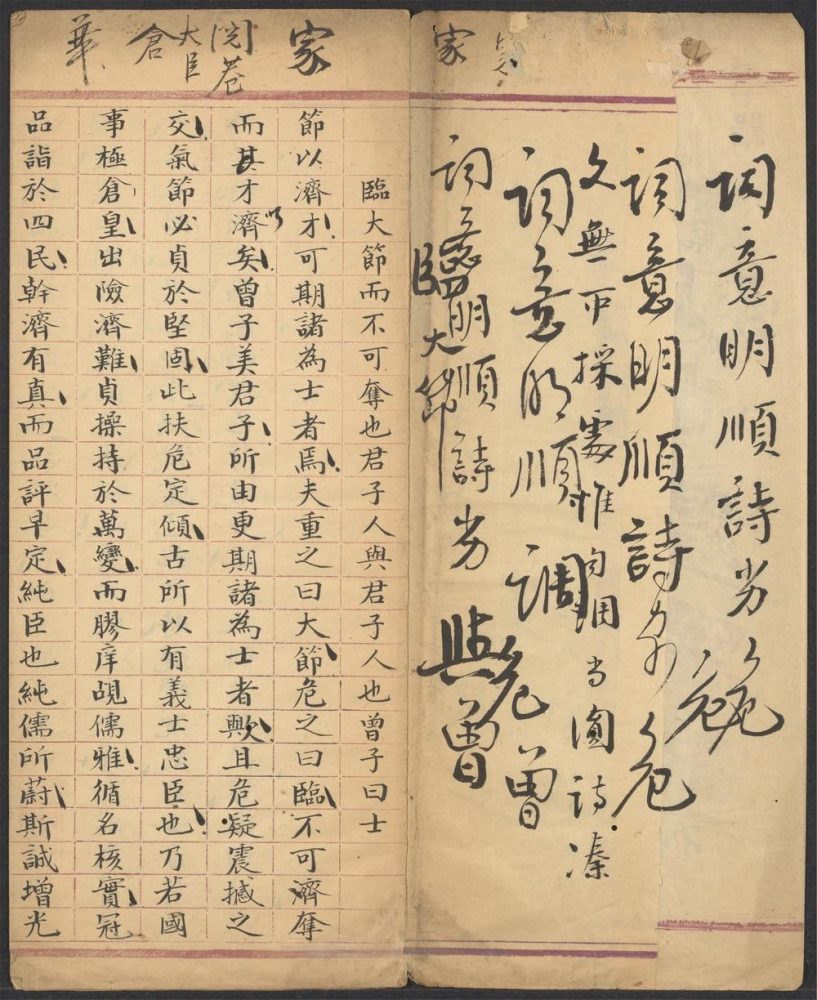 詞意明順詩劣
詞意明順詩劣
文無可採處惟句調尚圓詩凑
詞意明順
調
曾
詞意明順詩劣
臨大節
與曾
家
家
阅卷
大臣
倉
華
臨大節而不可奪也君子人與君子人也曾子曰士
節以濟才可期諸為士者焉夫重之曰大節危之曰臨不可濟奪
而其才濟矣曾子美君子所由更期諸為士者歟且危疑震撼之
交氣節必貞於堅固此扶危定傾古所以有義士忠臣也乃若國
事極倉皇出險濟難貞操持於萬變而膠庠覘儒雅循名核實冠
品詣於四民幹濟有真而品評早定純臣也純儒所蔚斯誠增光